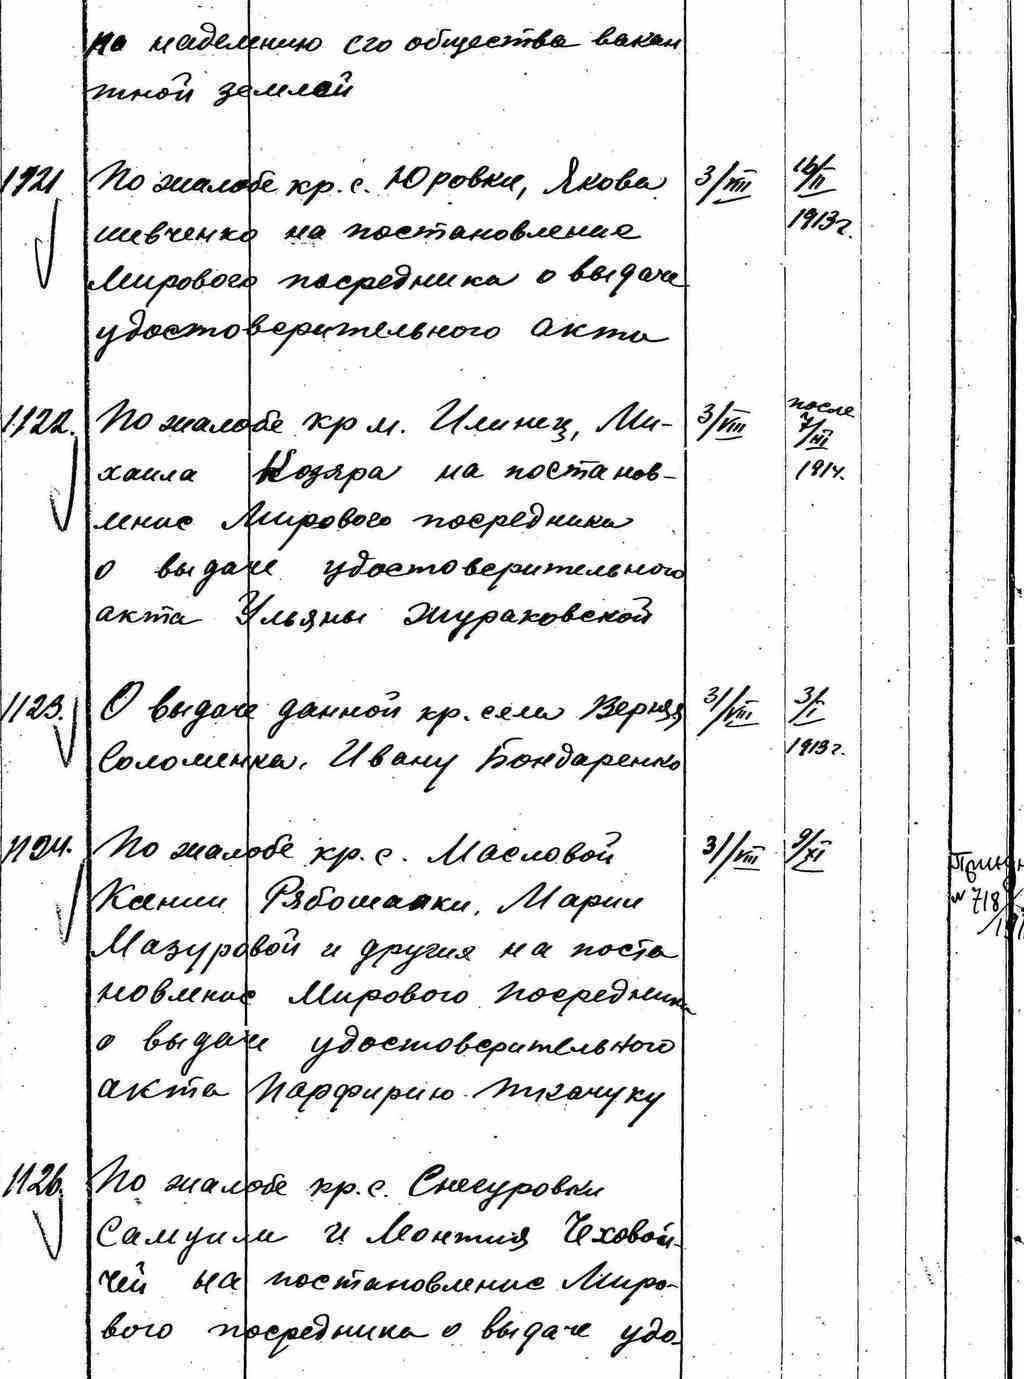 по наделению его общества вакан
тной землей
1121 По жалобе кр. с. Юровки, Якова 3/VIII 16/II
Шевченко на постановление 1913 г.
Мирового посредника о выдаче
удостоверительного акта
1122. По жалобе кр м. Илинец, Ми- 3/VIII после 7/III
хаила Козяра на постанов- 1914.
ление Мирового посредника
о выдаче удостоверительного
акта Ульяны Жураковской
1123. О выдаче данной кр. села 31/VIII 3/I
Соломенка, Ивану Бондаренко 1913 г.
1124. По жалобе кр. с. Масловой 31/VIII 9/XI
Ксении Марии № 718
Мазуровой и другия на поста
новление Мирового Посредника
о выдаче удостоверительного
акта Парфирию Ткачуку
1126. По жалобе кр. с.
Самуила и
чей на постановление Миро-
вого посредника о выдаче удо-